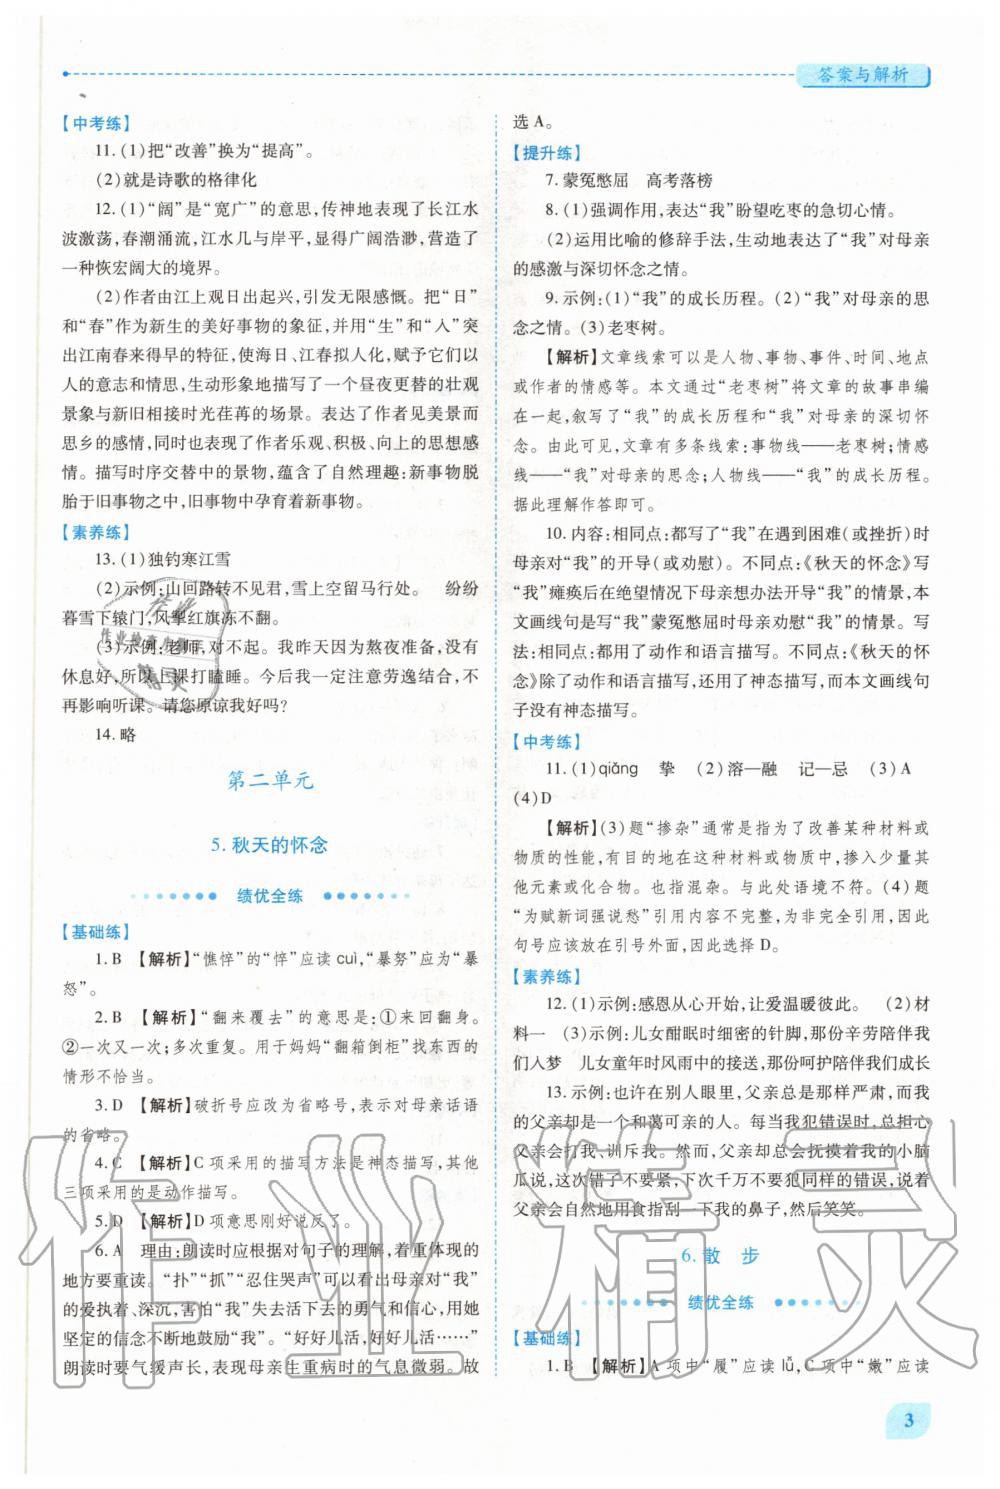 答案与解析
【中考练】
11.(1)把“改善”换为“提高”。
(2)就是诗歌的格律化
12.(1)“阔”是“宽广”的意思,传神地表现了长江水
波激荡,春潮涌流,江水几与岸平,显得广阔浩渺,营造了
一种恢宏阔大的境界。
(2)作者由江上观日出起兴,引发无限感慨。把“日”
和“春”作为新生的美好事物的象征,并用“生”和“入”突
出江南春来得早的特征,使海日、江春拟人化,赋予它们以
人的意志和情思,生动形象地描写了昼夜更替的壮观
景象与新旧相接时光荏苒的场景。表达了作者见美景而
思乡的感情,同时也表现了作者乐观、积极、向上的思想感
情。描写时序交替中的景物,蕴含了自然理趣:新事物脱
胎于旧事物之中,旧事物中孕育着新事物。
【素养练】
13.(1)独钓寒江雪
(2)示例:山回路转不见君,雪上空留马行处。 纷纷
暮雪下辕门,风掣红旗冻不翻。
(3)示例:老师,对不起。我昨天因为熬夜准备,没有
休息好,所以上课打瞌睡。今后我一定注意劳逸结合,不
再影响听课。请您原谅我好吗?
14.略
第二单元
5.秋天的怀念
绩优全练
【基础练】
1.B 【解析】“憔悴”的“悴”应读 cuì,“暴努”应为“暴
怒”。
2.B 【解析】“翻来覆去”的意思是:①来回翻身。
②一次又一次;多次重复。用于妈妈“翻箱倒柜”找东西的
情形不恰当。
3.D 【解析】破折号应改为省略号,表示对母亲话语
的省略。
4.C 【解析】C项采用的描写方法是神态描写,其他
三项采用的是动作描写。
5.D 【解析】D项意思刚好说反了。
6.A 理由:朗读时应根据对句子的理解,着重体现的
地方要重读。“扑”“抓”“忍住哭声”可以看出母亲对“我”
的爱执着、深沉,害怕“我”失去活下去的勇气和信心,用她
坚定的信念不断地鼓励“我”。“好好儿活,好好儿活……”
朗读时要气缓声长,表现母亲生重病时的气息微弱。故
选 A。
【提升练】
7.蒙冤憋屈 高考落榜
8.(1)强调作用,表达“我”盼望吃枣的急切心情。
(2)运用比喻的修辞手法,生动地表达了“我”对母亲
的感激与深切怀念之情。
9.示例:(1)“我”的成长历程。(2)“我”对母亲的思
念之情。(3)老枣树。
【解析】文章线索可以是人物、事物、事件、时间、地点
或作者的情感等。本文通过“老枣树”将文章的故事串编
在一起,叙写了“我”的成长历程和“我”对母亲的深切怀
念。由此可见,文章有多条线索:事物线——老枣树;情感
线——“我”对母亲的思念;人物线——“我”的成长历程。
据此理解作答即可。
10.内容:相同点:都写了“我”在遇到困难(或挫折)时
母亲对“我”的开导(或劝慰)。不同点:《秋天的怀念》写
“我”瘫痪后在绝望情况下母亲想办法开导“我”的情景,本
文画线句是写“我”蒙冤憋屈时母亲劝慰“我”的情景。写
法:相同点:都用了动作和语言描写。不同点:《秋天的怀
念》除了动作和语言描写,还用了神态描写,而本文画线句
子没有神态描写。
【中考练】
11.(1)qiǎng 挚 (2)溶—融 记—忌 (3)A
(4)D
【解析】(3)题“掺杂”通常是指为了改善某种材料或
物质的性能,有目的地在这种材料或物质中,掺入少量其
他元素或化合物。也指混杂。与此处语境不符。(4)题
“为赋新词强说愁”引用内容不完整,为引用部分,因此
句号应该放在引号外面,因此选择 D。
【素养练】
12.(1)示例:感恩从心开始,让爱温暖彼此。 (2)材
料一 (3)示例:儿女酣眠时细密的针脚,那份辛劳陪伴我
们入梦 儿女童年时风雨中的接送,那份呵护陪伴我们成长
13.示例:也许在别人眼里,父亲总是那样严肃,而我
的父亲却是一个和蔼可亲的人。每当我犯错误时,总担心
父亲会打我、训斥我。然而,父亲却总会抚摸着我的小脑
瓜说,这次错了不要紧,下次千万不要犯同样的错误,说着
父亲会自然地用食指刮一下我的鼻子,然后笑笑。
6.散 步
绩优全练
【基础练】
1.B 【解析】A项中“履”应读 lǚ,C项中“嫩”应读
3
作业精灵